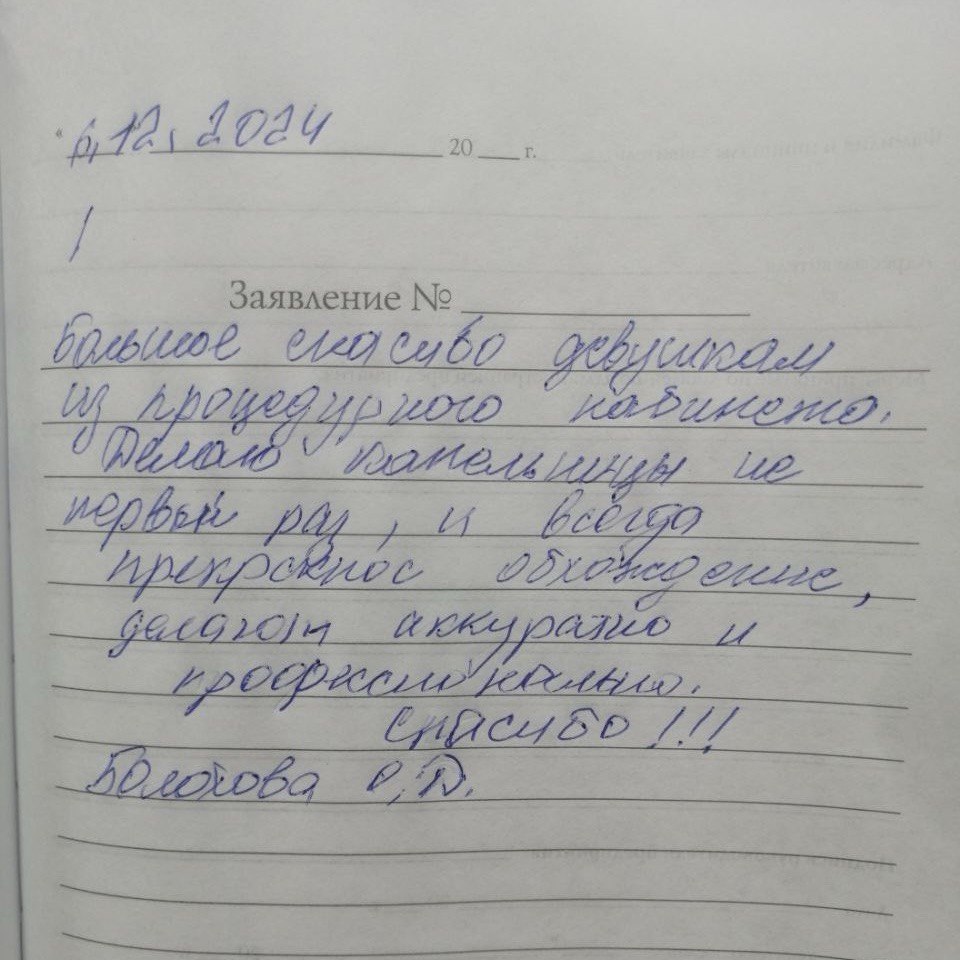 6.12.2024
" 20 г.
Заявление №
Большое спасибо девушкам
из процедурного кабинета.
Делаю капельницы не
первый раз, и всегда
прекрасное обхождение,
делают аккуратно и
профессионально.
Спасибо!!!
Болотова О.Д.